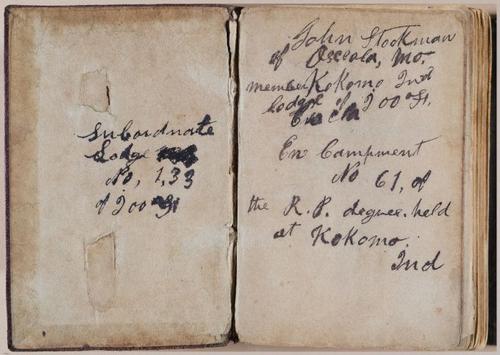 Subordnate
Lodge
No, 133
of
John Stookman
of Osceola, Mo.
member Kokomo Ind
lodge of
En Campment
No 61, of
the R. P. degree. held
at Kokomo.
Ind